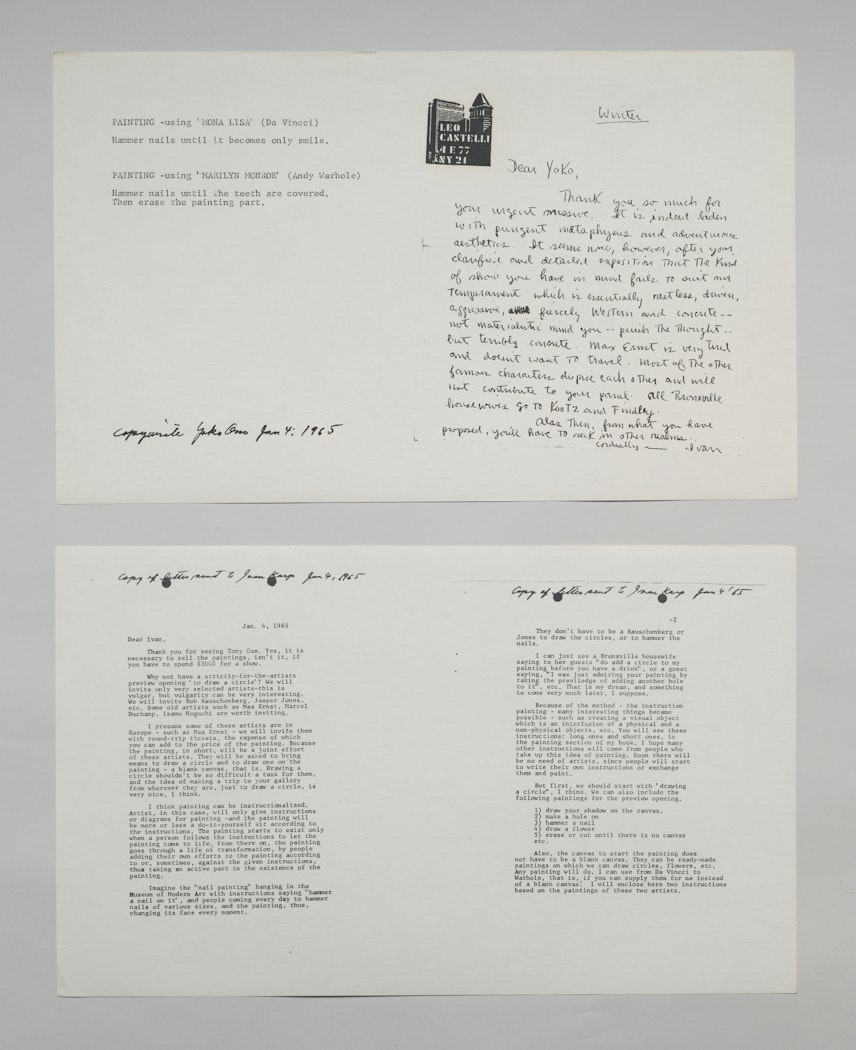 PAINTING -using 'MONA LISA' (Da Vincci)
Hammer nails until it becomes only smile.
PAINTING -using 'MARILYN MONROE' (Andy Warhole)
Hammer nails until the teeth are covered.
Then erase the painting part.
copywrite Yoko Ono Jan 4. 1965
LEO
CASTELLI
4 E 77
NY 21
Winter
Dear Yoko,
Thank you so much for
your urgent missive. It is indeed laden
with pungent metaphysics and adventurous
aesthetics. It seems now, however, after your
clarified and detailed exposition that the kind
of show you have in mind fails to suit our
temperament which is essentially restless, driven,
aggressive, fiercely Western and concrete--
not materialistic mind you -- perish the thought --
but terribly concrete. Max Ernst is very tired
and doesnt want to travel. Most of the other
famous characters dispise each other and will
not contribute to your panel. All Bronxville
housewives go to Kootz and Findlay.
Alas then, from what you have
proposed, you'll have to seek in other realms.
Cordially — Ivan
Copy of letter sent to Ivan Karp Jan 4, 1965
Jan. 4, 1965
Dear Ivan,
Thank you for seeing Tony Cox. Yes, it is
necessary to sell the paintings, isn't it, if
you have to spend $3000 for a show.
Why not have a strictly-for-the-artists
preview opening "to draw a circle"? We will
invite only very selected artists-this is
vulgar, but vulgarity can be very interesting.
We will invite Bob Rauschenberg, Jasper Jones,
etc. Some old artists such as Max Ernst, Marcel
Duchamp, Isamu Noguchi are worth inviting.
I presume some of these artists are in
Europe - such as Max Ernst - we will invite them
with round-trip tickets, the expense of which
you can add to the price of the painting. Because
the painting, in short, will be a joint effort
of these artists. They will be asked to bring
means to draw a circle and to draw one on the
painting - a blank canvas, that is. Drawing a
circle shouldn't be so difficult a task for them,
and the idea of making a trip to your gallery
from wherever they are, just to draw a circle, is
very nice, I think.
I think painting can be instructionalized.
Artist, in this case, will only give instructions
or diagrams for painting -and the painting will
be more or less a do-it-yourself kit according to
the instructions. The painting starts to exist only
when a person follows the instructions to let the
painting come to life. From there on, the painting
goes through a life of transformation, by people
adding their own efforts to the painting according
to or, sometimes, against the given instructions,
thus taking an active part in the existence of the
painting.
Imagine the "nail painting" hanging in the
Museum of Modern Art with instructions saying "hammer
a nail on it", and people coming every day to hammer
nails of various sizes, and the painting, thus,
changing its face every moment.
Copy of letter sent to Ivan Karp Jan 4 '65
-2
They don't have to be a Rauschenberg or
Jones to draw the circles, or to hammer the
nails.
I can just see a Bronxville housewife
saying to her guests "do add a circle to my
painting before you have a drink", or a guest
saying, "I was just admiring your painting by
taking the previledge of adding another hole
to it", etc. That is my dream, and something
to come very much later, I suppose.
Because of the method - the instruction
painting - many interesting things became
possible - such as creating a visual object
which is an interfusion of a physical and a
non-physical objects, etc. You will see these
instructions: long ones and short ones, in
the painting section of my book. I hope many
other instructions will come from people who
take up this idea of painting. Soon there will
be no need of artists, since people will start
to write their own instructions or exchange
them and paint.
But first, we should start with "drawing
a circle", I think. We can also include the
following paintings for the preview opening.
1) draw your shadow on the canvas.
2) make a hole on
3) hammer a nail
4) draw a flower
5) erase or cut until there is no canvas
etc.
Also, the canvas to start the painting does
not have to be a blank canvas. They can be ready-made
paintings on which we can draw circles, flowers, etc.
Any painting will do. I can use from Da Vincci to
Warhole, that is, if you can supply them for me instead
of a blank canvas! I will enclose here two instructions
based on the paintings of these two artists.